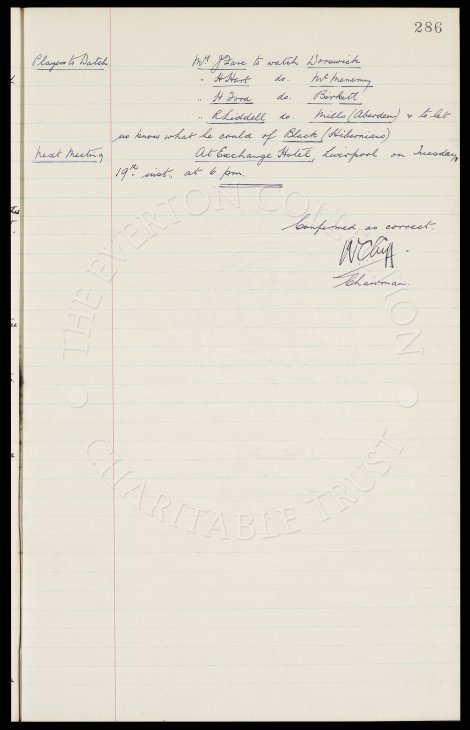 286
Players to Watch Mr J Fare to watch Dorswick
" H Hart do. McMenemy
" H Ford do. Birkett
" R Liddell do. Mills (Aberdeen) & to let
us know what he could of Black (Hibernians)
Next Meeting At Exchange Hotel, Liverpool on Tuesday,
19th inst., at 6 pm.
Confirmed as correct.
W C Cuff
Chairman.
THE EVERTON COLLECTION
CHARITABLE TRUST